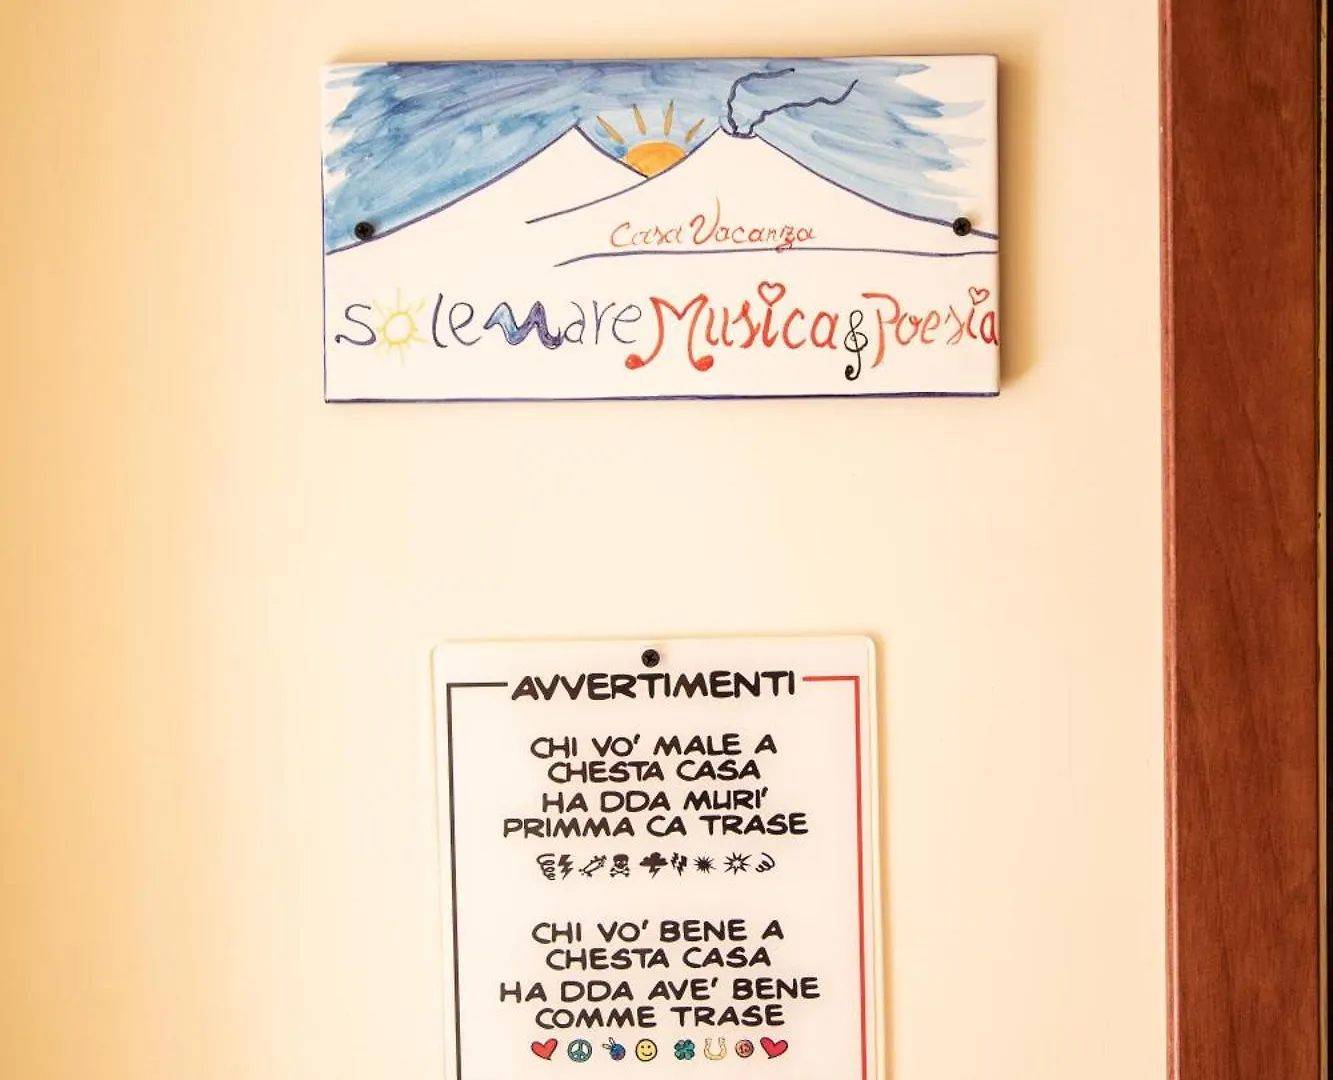 Casa Vacanza
Sole Mare Musica & Poesia
AVVERTIMENTI
CHI VO' MALE A
CHESTA CASA
HA DDA MURI'
PRIMMA CA TRASE
CHI VO' BENE A
CHESTA CASA
HA DDA AVE' BENE
COMME TRASE